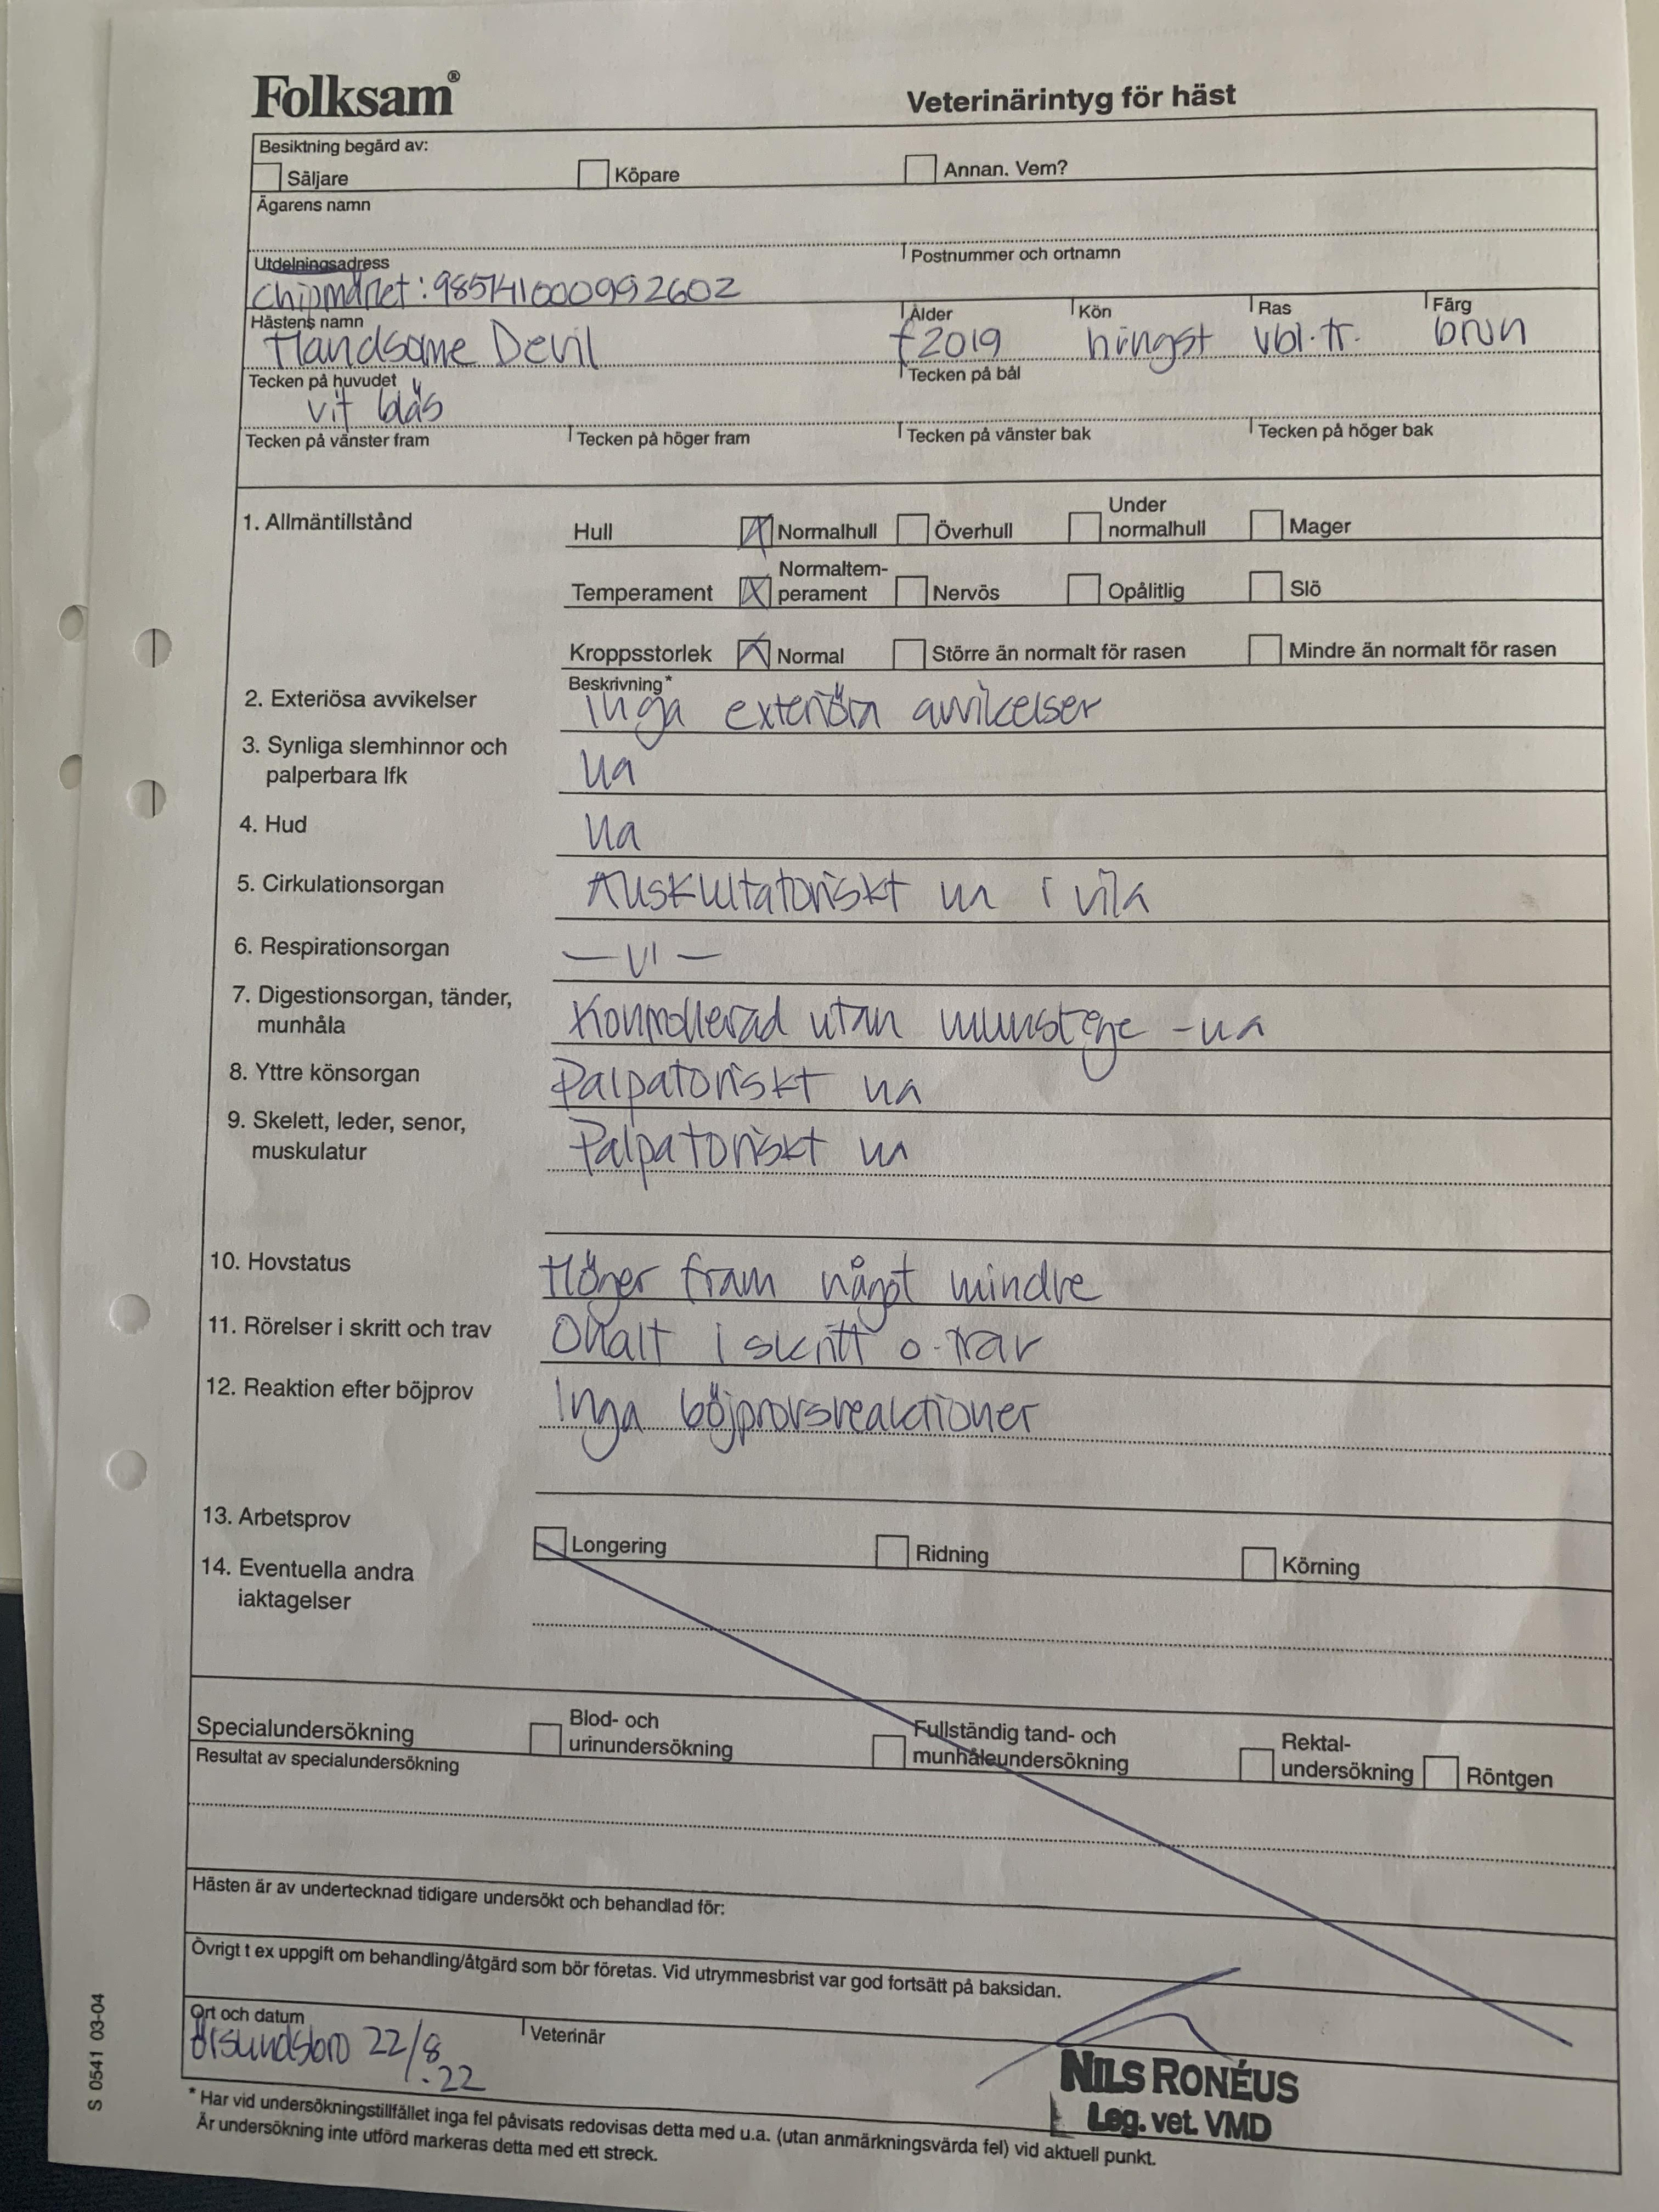 Folksam®
Veterinärintyg för häst
Besiktning begärd av:
Säljare Köpare Annan. Vem?
Ägarens namn
Utdelningsadress Postnummer och ortnamn
Chipmärket: 985141000992602
Hästens namn Ålder Kön Ras Färg
Handsome Devil f2019 hingst vbl.tr. brun
Tecken på huvudet Tecken på bål
vit bläs
Tecken på vänster fram Tecken på höger fram Tecken på vänster bak Tecken på höger bak
1. Allmäntillstånd
Hull Normalhull Överhull Under normalhull Mager
Temperament Normaltem-perament Nervös Opålitlig Slö
Kroppsstorlek Normal Större än normalt för rasen Mindre än normalt för rasen
Beskrivning*
2. Exteriösa avvikelser Inga exteriöra avvikelser
3. Synliga slemhinnor och
palperbara lfk ua
4. Hud ua
5. Cirkulationsorgan Auskultatoriskt ua i vila
6. Respirationsorgan — " —
7. Digestionsorgan, tänder,
munhåla Kontrollerad utan munstege - ua
8. Yttre könsorgan Palpatoriskt ua
9. Skelett, leder, senor,
muskulatur Palpatoriskt ua
10. Hovstatus Höger fram något mindre
11. Rörelser i skritt och trav Ohalt i skritt o. trav
12. Reaktion efter böjprov Inga böjprovsreaktioner
13. Arbetsprov Longering Ridning Körning
14. Eventuella andra
iaktagelser
Specialundersökning Blod- och urinundersökning Fullständig tand- och munhåleundersökning Rektal-undersökning Röntgen
Resultat av specialundersökning
Hästen är av undertecknad tidigare undersökt och behandlad för:
Övrigt t ex uppgift om behandling/åtgärd som bör företas. Vid utrymmesbrist var god fortsätt på baksidan.
Ort och datum Veterinär
Örsundsbro 22/8.22
NILS RONÉUS
Leg. vet. VMD
* Har vid undersökningstillfället inga fel påvisats redovisas detta med u.a. (utan anmärkningsvärda fel) vid aktuell punkt.
Är undersökning inte utförd markeras detta med ett streck.
S 0541 03-04